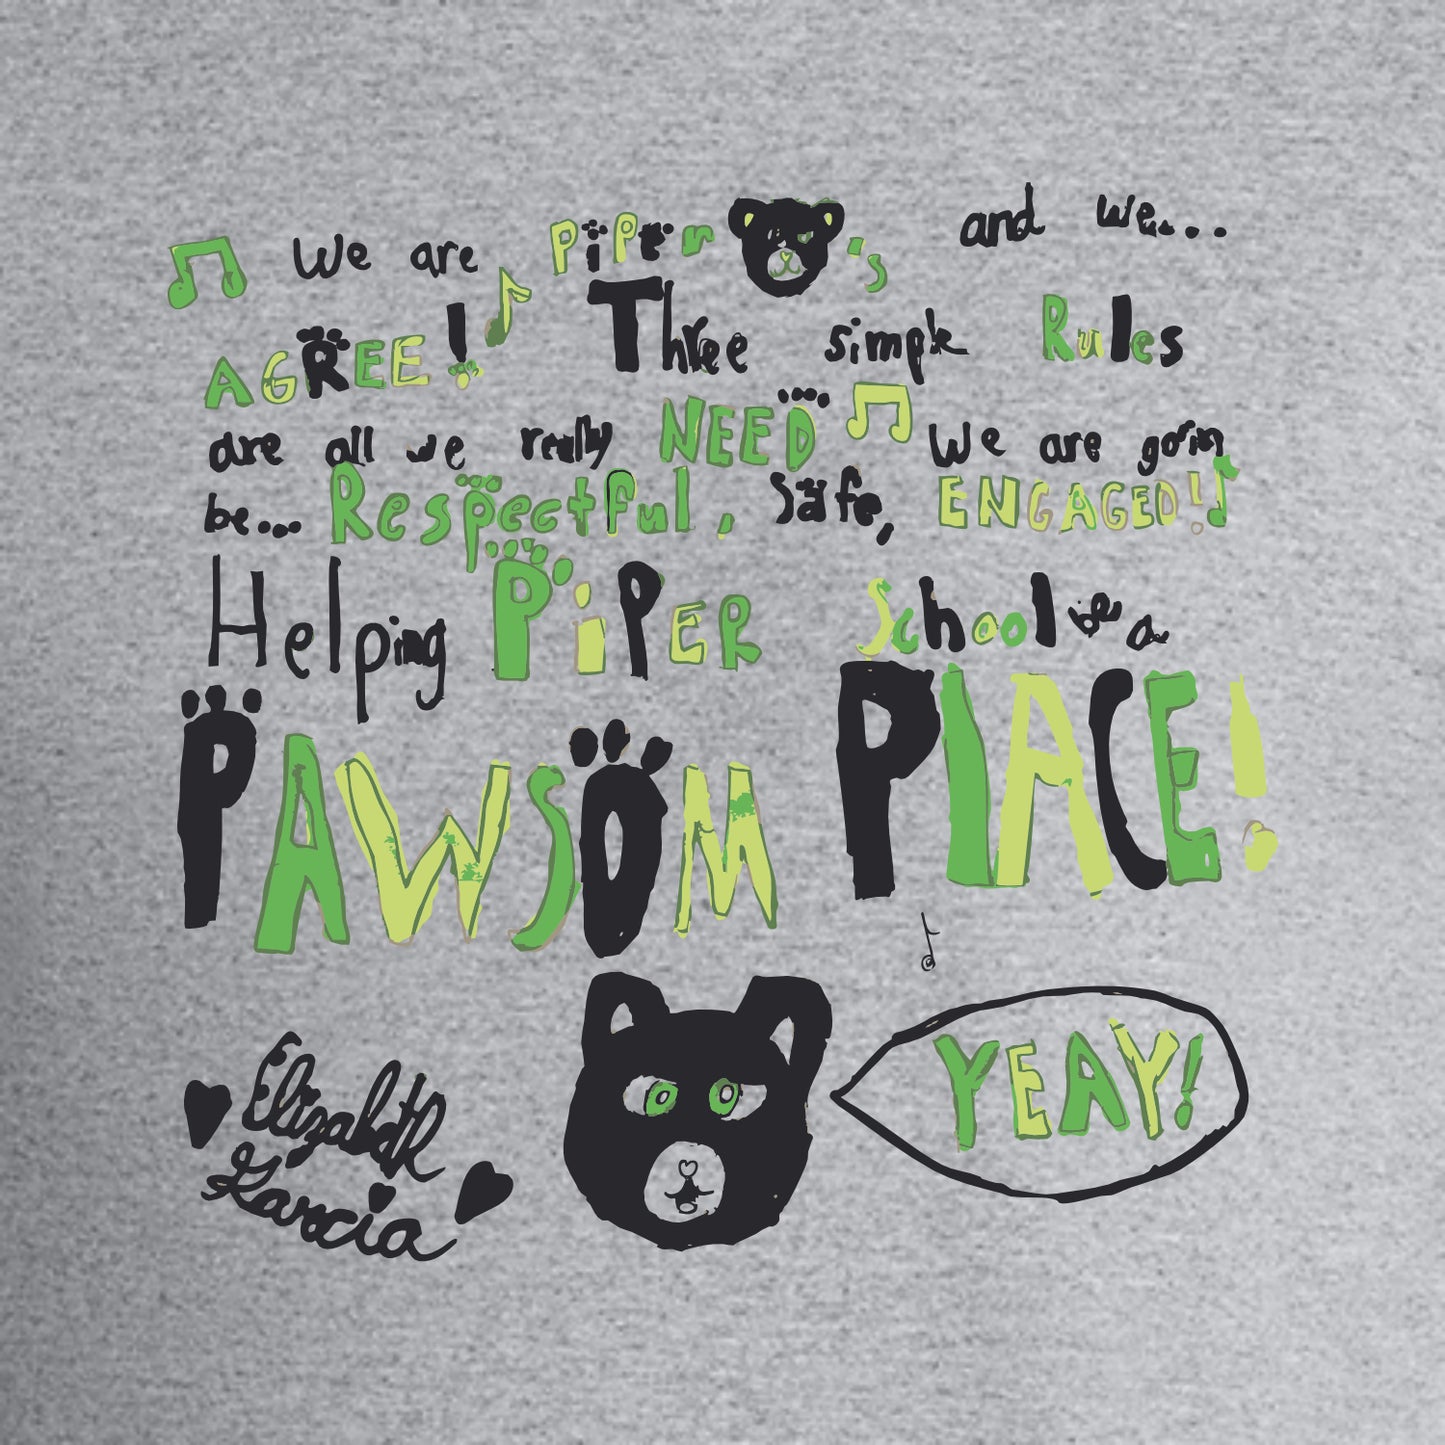 We are Piper 's and we...
AGREE! Three simple Rules
are all we really NEED We are goin
be... Respectful, Safe, ENGAGED!
Helping PiPER School be a
PAWSOM PlACE!
YEAY!
Elizabeth
Garcia